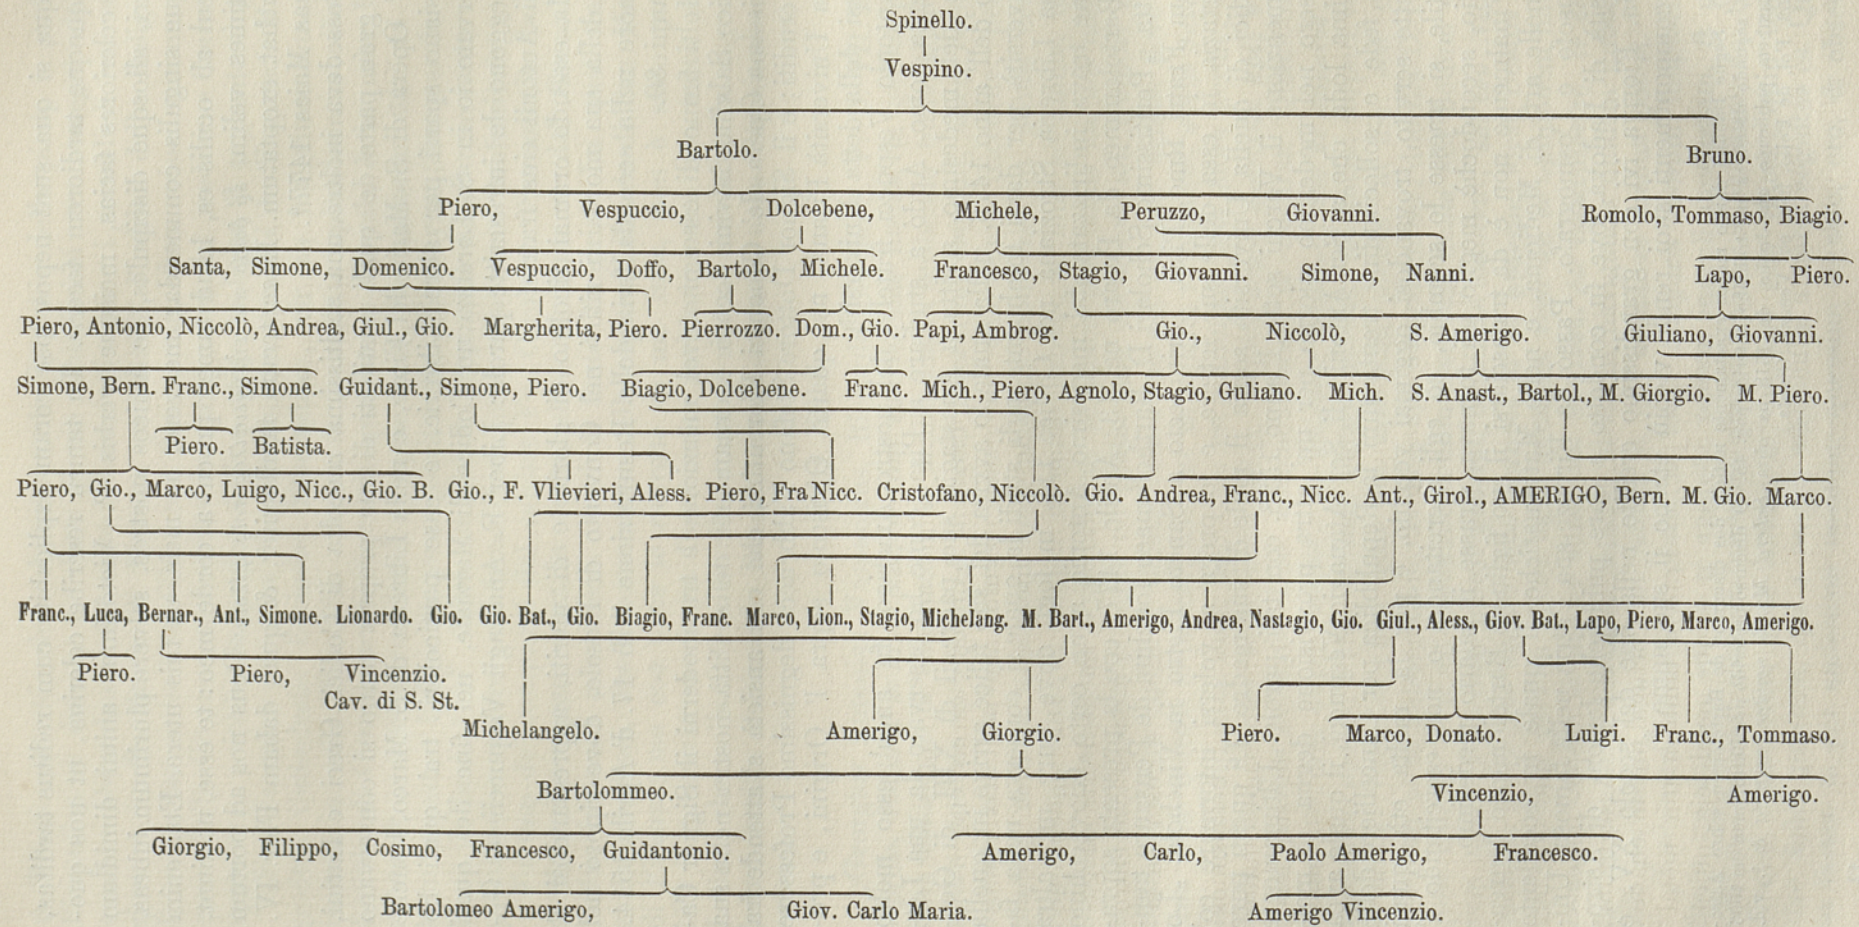 Spinello.
Vespino.
Bartolo. Bruno.
Piero, Vespuccio, Dolcebene, Michele, Peruzzo, Giovanni. Romolo, Tommaso, Biagio.
Santa, Simone, Domenico. Vespuccio, Doffo, Bartolo, Michele. Francesco, Stagio, Giovanni. Simone, Nanni. Lapo, Piero.
Piero, Antonio, Niccolò, Andrea, Giul., Gio. Margherita, Piero. Pierrozzo. Dom., Gio. Papi, Ambrog. Gio., Niccolò, S. Amerigo. Giuliano, Giovanni.
Simone, Bern. Franc., Simone. Guidant., Simone, Piero. Biagio, Dolcebene. Franc. Mich., Piero, Agnolo, Stagio, Guliano. Mich. S. Anast., Bartol., M. Giorgio. M. Piero.
Piero. Batista.
Piero, Gio., Marco, Luigo, Nicc., Gio. B. Gio., F. Vlievieri, Aless. Piero, Fra Nicc. Cristofano, Niccolò. Gio. Andrea, Franc., Nicc. Ant., Girol., AMERIGO, Bern. M. Gio. Marco.
Franc., Luca, Bernar., Ant., Simone. Lionardo. Gio. Gio. Bat., Gio. Biagio, Franc. Marco, Lion., Stagio, Michelang. M. Bart., Amerigo, Andrea, Nastagio, Gio. Giul., Aless., Giov. Bat., Lapo, Piero, Marco, Amerigo.
Piero. Piero, Vincenzio.
Cav. di S. St.
Michelangelo. Amerigo, Giorgio. Piero. Marco, Donato. Luigi. Franc., Tommaso.
Bartolommeo. Vincenzio, Amerigo.
Giorgio, Filippo, Cosimo, Francesco, Guidantonio. Amerigo, Carlo, Paolo Amerigo, Francesco.
Bartolomeo Amerigo, Giov. Carlo Maria. Amerigo Vincenzio.